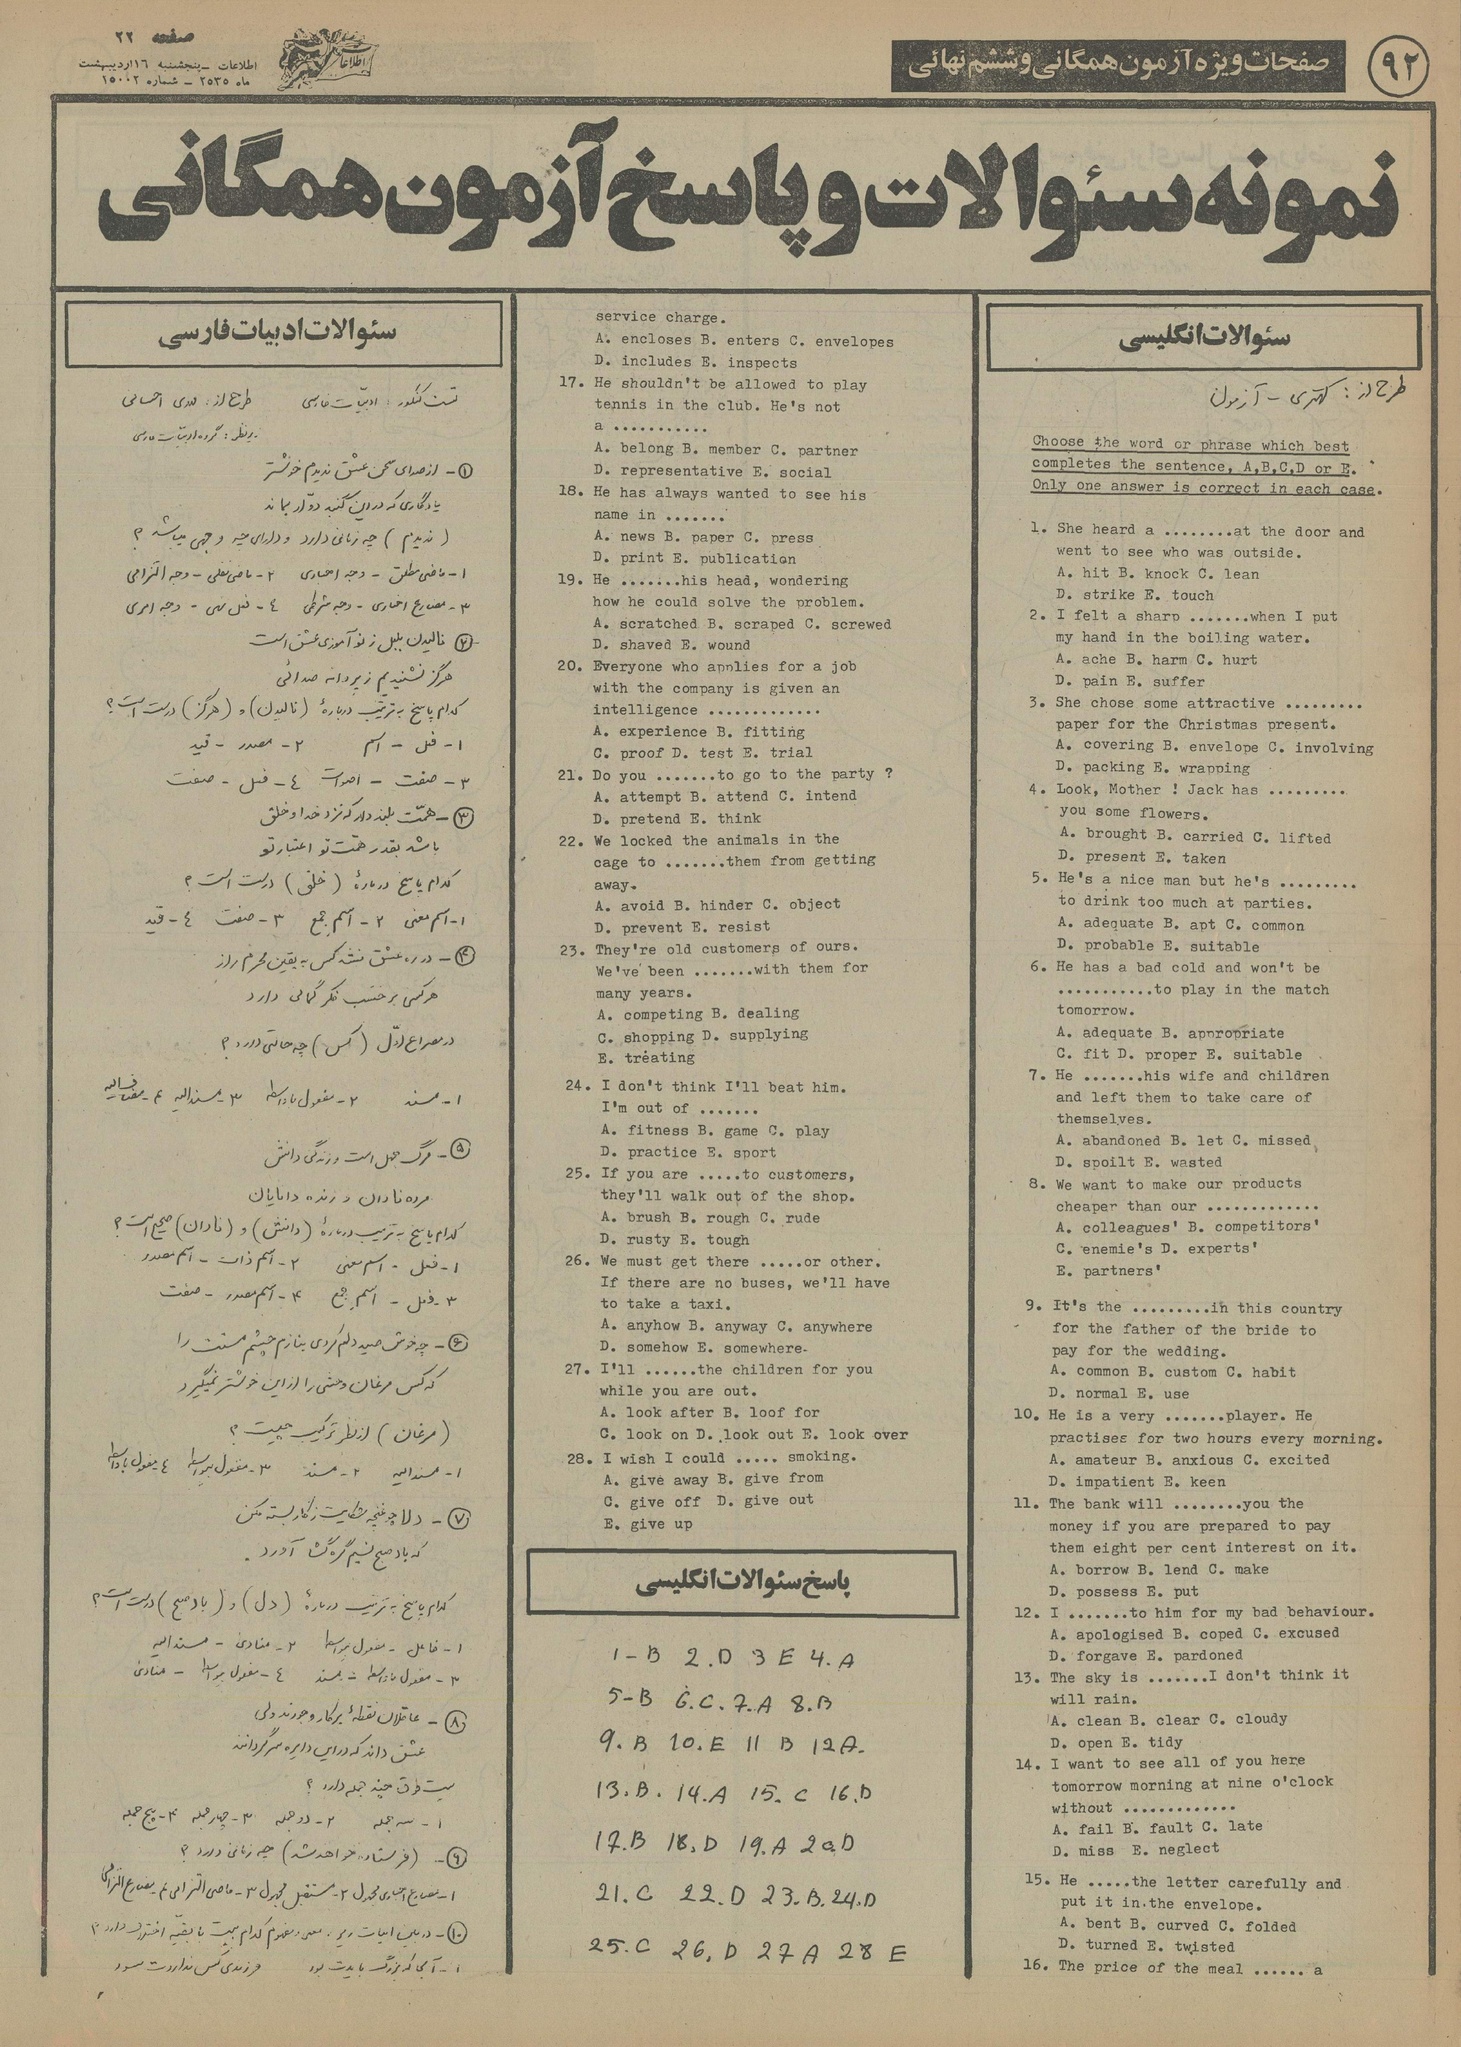 ۹۲
صفحات ویژه آزمون همگانی و ششم نهائی
صفحه ۲۲
اطلاعات – پنجشنبه ۱۶ اردیبهشت
ماه ۲۵۳۵ – شماره ۱۵۰۰۲
نمونه سئوالات و پاسخ آزمون همگانی
سئوالات انگلیسی
طرح از:
آزمون
Choose the word or phrase which best
completes the sentence, A,B,C,D or E.
Only one answer is correct in each case.
1. She heard a ........at the door and
went to see who was outside.
A. hit B. knock C. lean
D. strike E. touch
2. I felt a sharp .......when I put
my hand in the boiling water.
A. ache B. harm C. hurt
D. pain E. suffer
3. She chose some attractive .........
paper for the Christmas present.
A. covering B. envelope C. involving
D. packing E. wrapping
4. Look, Mother ! Jack has .........
you some flowers.
A. brought B. carried C. lifted
D. present E. taken
5. He's a nice man but he's .........
to drink too much at parties.
A. adequate B. apt C. common
D. probable E. suitable
6. He has a bad cold and won't be
...........to play in the match
tomorrow.
A. adequate B. appropriate
C. fit D. proper E. suitable
7. He .......his wife and children
and left them to take care of
themselves.
A. abandoned B. let C. missed
D. spoilt E. wasted
8. We want to make our products
cheaper than our .............
A. colleagues' B. competitors'
C. enemie's D. experts'
E. partners'
9. It's the .........in this country
for the father of the bride to
pay for the wedding.
A. common B. custom C. habit
D. normal E. use
10. He is a very .......player. He
practises for two hours every morning.
A. amateur B. anxious C. excited
D. impatient E. keen
11. The bank will ........you the
money if you are prepared to pay
them eight per cent interest on it.
A. borrow B. lend C. make
D. possess E. put
12. I .......to him for my bad behaviour.
A. apologised B. coped C. excused
D. forgave E. pardoned
13. The sky is .......I don't think it
will rain.
A. clean B. clear C. cloudy
D. open E. tidy
14. I want to see all of you here
tomorrow morning at nine o'clock
without .............
A. fail B. fault C. late
D. miss E. neglect
15. He .....the letter carefully and
put it in.the envelope.
A. bent B. curved C. folded
D. turned E. twisted
16. The price of the meal ...... a
service charge.
A. encloses B. enters C. envelopes
D. includes E. inspects
17. He shouldn't be allowed to play
tennis in the club. He's not
a ...........
A. belong B. member C. partner
D. representative E. social
18. He has always wanted to see his
name in .......
A. news B. paper C. press
D. print E. publication
19. He .......his head, wondering
how he could solve the problem.
A. scratched B. scraped C. screwed
D. shaved E. wound
20. Everyone who applies for a job
with the company is given an
intelligence .............
A. experience B. fitting
C. proof D. test E. trial
21. Do you .......to go to the party ?
A. attempt B. attend C. intend
D. pretend E. think
22. We locked the animals in the
cage to .......them from getting
away.
A. avoid B. hinder C. object
D. prevent E. resist
23. They're old customers of ours.
We've been .......with them for
many years.
A. competing B. dealing
C. shopping D. supplying
E. treating
24. I don't think I'll beat him.
I'm out of .......
A. fitness B. game C. play
D. practice E. sport
25. If you are .....to customers,
they'll walk out of the shop.
A. brush B. rough C. rude
D. rusty E. tough
26. We must get there .....or other.
If there are no buses, we'll have
to take a taxi.
A. anyhow B. anyway C. anywhere
D. somehow E. somewhere.
27. I'll ......the children for you
while you are out.
A. look after B. loof for
C. look on D. look out E. look over
28. I wish I could ..... smoking.
A. give away B. give from
C. give off D. give out
E. give up
پاسخ سئوالات انگلیسی
1-B 2.D 3 E 4.A
5-B 6.C. 7.A 8.B
9.B 10.E 11 B 12A.
13.B. 14.A 15. C 16.D
17.B 18.D 19.A 20.D
21.C 22.D 23.B. 24.D
25.C 26.D 27 A 28 E
سئوالات ادبیات فارسی
تست کنکور: ادبیات فارسی طرح از: مهدی احسانی
زیر نظر: گروه ادبیات فارسی
۱- از صدای سخن عشق ندیدم خوشتر
یادگاری که در این گنبد دوّار بماند
(ندیدم) چه زمانی دارد و دارای چه وجهی میباشد؟
۱- ماضی مطلق - وجه اخباری ۲- ماضی نقلی - وجه التزامی
۳- مضارع اخباری - وجه شرطی ٤- فعل نهی - وجه امری
۲- نالیدن بلبل ز نوآموزی عشق است
هرگز نشنیدیم ز پروانه صدائی
کدام پاسخ به ترتیب دربارهٔ (نالیدن) و (هرگز) درست است؟
۱- فعل - اسم ۲- مصدر - قید
۳- صفت - اصوات ٤- فعل - صفت
۳- همّت بلند دار که نزد خدا و خلق
باشد بقدر همّت تو اعتبار تو
کدام پاسخ دربارهٔ (خلق) درست است؟
۱- اسم معنی ۲- اسم جمع ۳- صفت ٤- قید
۴- در ره عشق نشد کس به یقین محرم راز
هر کسی بر حسب فکر گمانی دارد
در مصراع اوّل (کس) چه حالتی دارد؟
۱- مسند ۲- مفعول باواسطه ۳- مسندالیه ۴- مضاف‌الیه
۵- مرگ جهل است و زندگی دانش
مرده نادان و زنده دانایان
کدام پاسخ به ترتیب دربارهٔ (دانش) و (نادان) صحیح است؟
۱- فعل - اسم معنی ۲- اسم ذات - اسم مصدر
۳- فعل - اسم جمع ۴- اسم مصدر - صفت
۶- چه خوش صید دلم کردی بنازم چشم مستت را
که کس مرغان وحشی را از این خوشتر نمیگیرد
(مرغان) از نظر ترکیب چیست؟
۱- مسندالیه ۲- مسند ۳- مفعول بیواسطه ٤- مفعول باواسطه
۷- دلا چو غنچه شکایت ز کار بسته مکن
که باد صبح نسیم گره گشا آورد.
کدام پاسخ به ترتیب دربارهٔ (دل) و (باد صبح) درست است؟
۱- فاعل - مفعول بیواسطه ۲- منادی - مسندالیه
۳- مفعول باواسطه - مسند ٤- مفعول بیواسطه - منادی
۸- عاقلان نقطهٔ پرگار وجودند ولی
عشق داند که در این دایره سرگردانند
بیت فوق چند جمله دارد؟
۱- سه جمله ۲- دو جمله ۳- چهار جمله ۴- پنج جمله
۹- (فرستاده خواهد شد) چه زمانی دارد؟
۱- مضارع اخباری مجهول ۲- مستقبل مجهول ۳- ماضی التزامی ۴- مضارع التزامی
۱۰- در بین ابیات زیر، معنی و مفهوم کدام بیت با بقیّه اختلاف دارد؟
۱- آنجا که بزرگ بایدت بود فرزندی کس نداردت سود